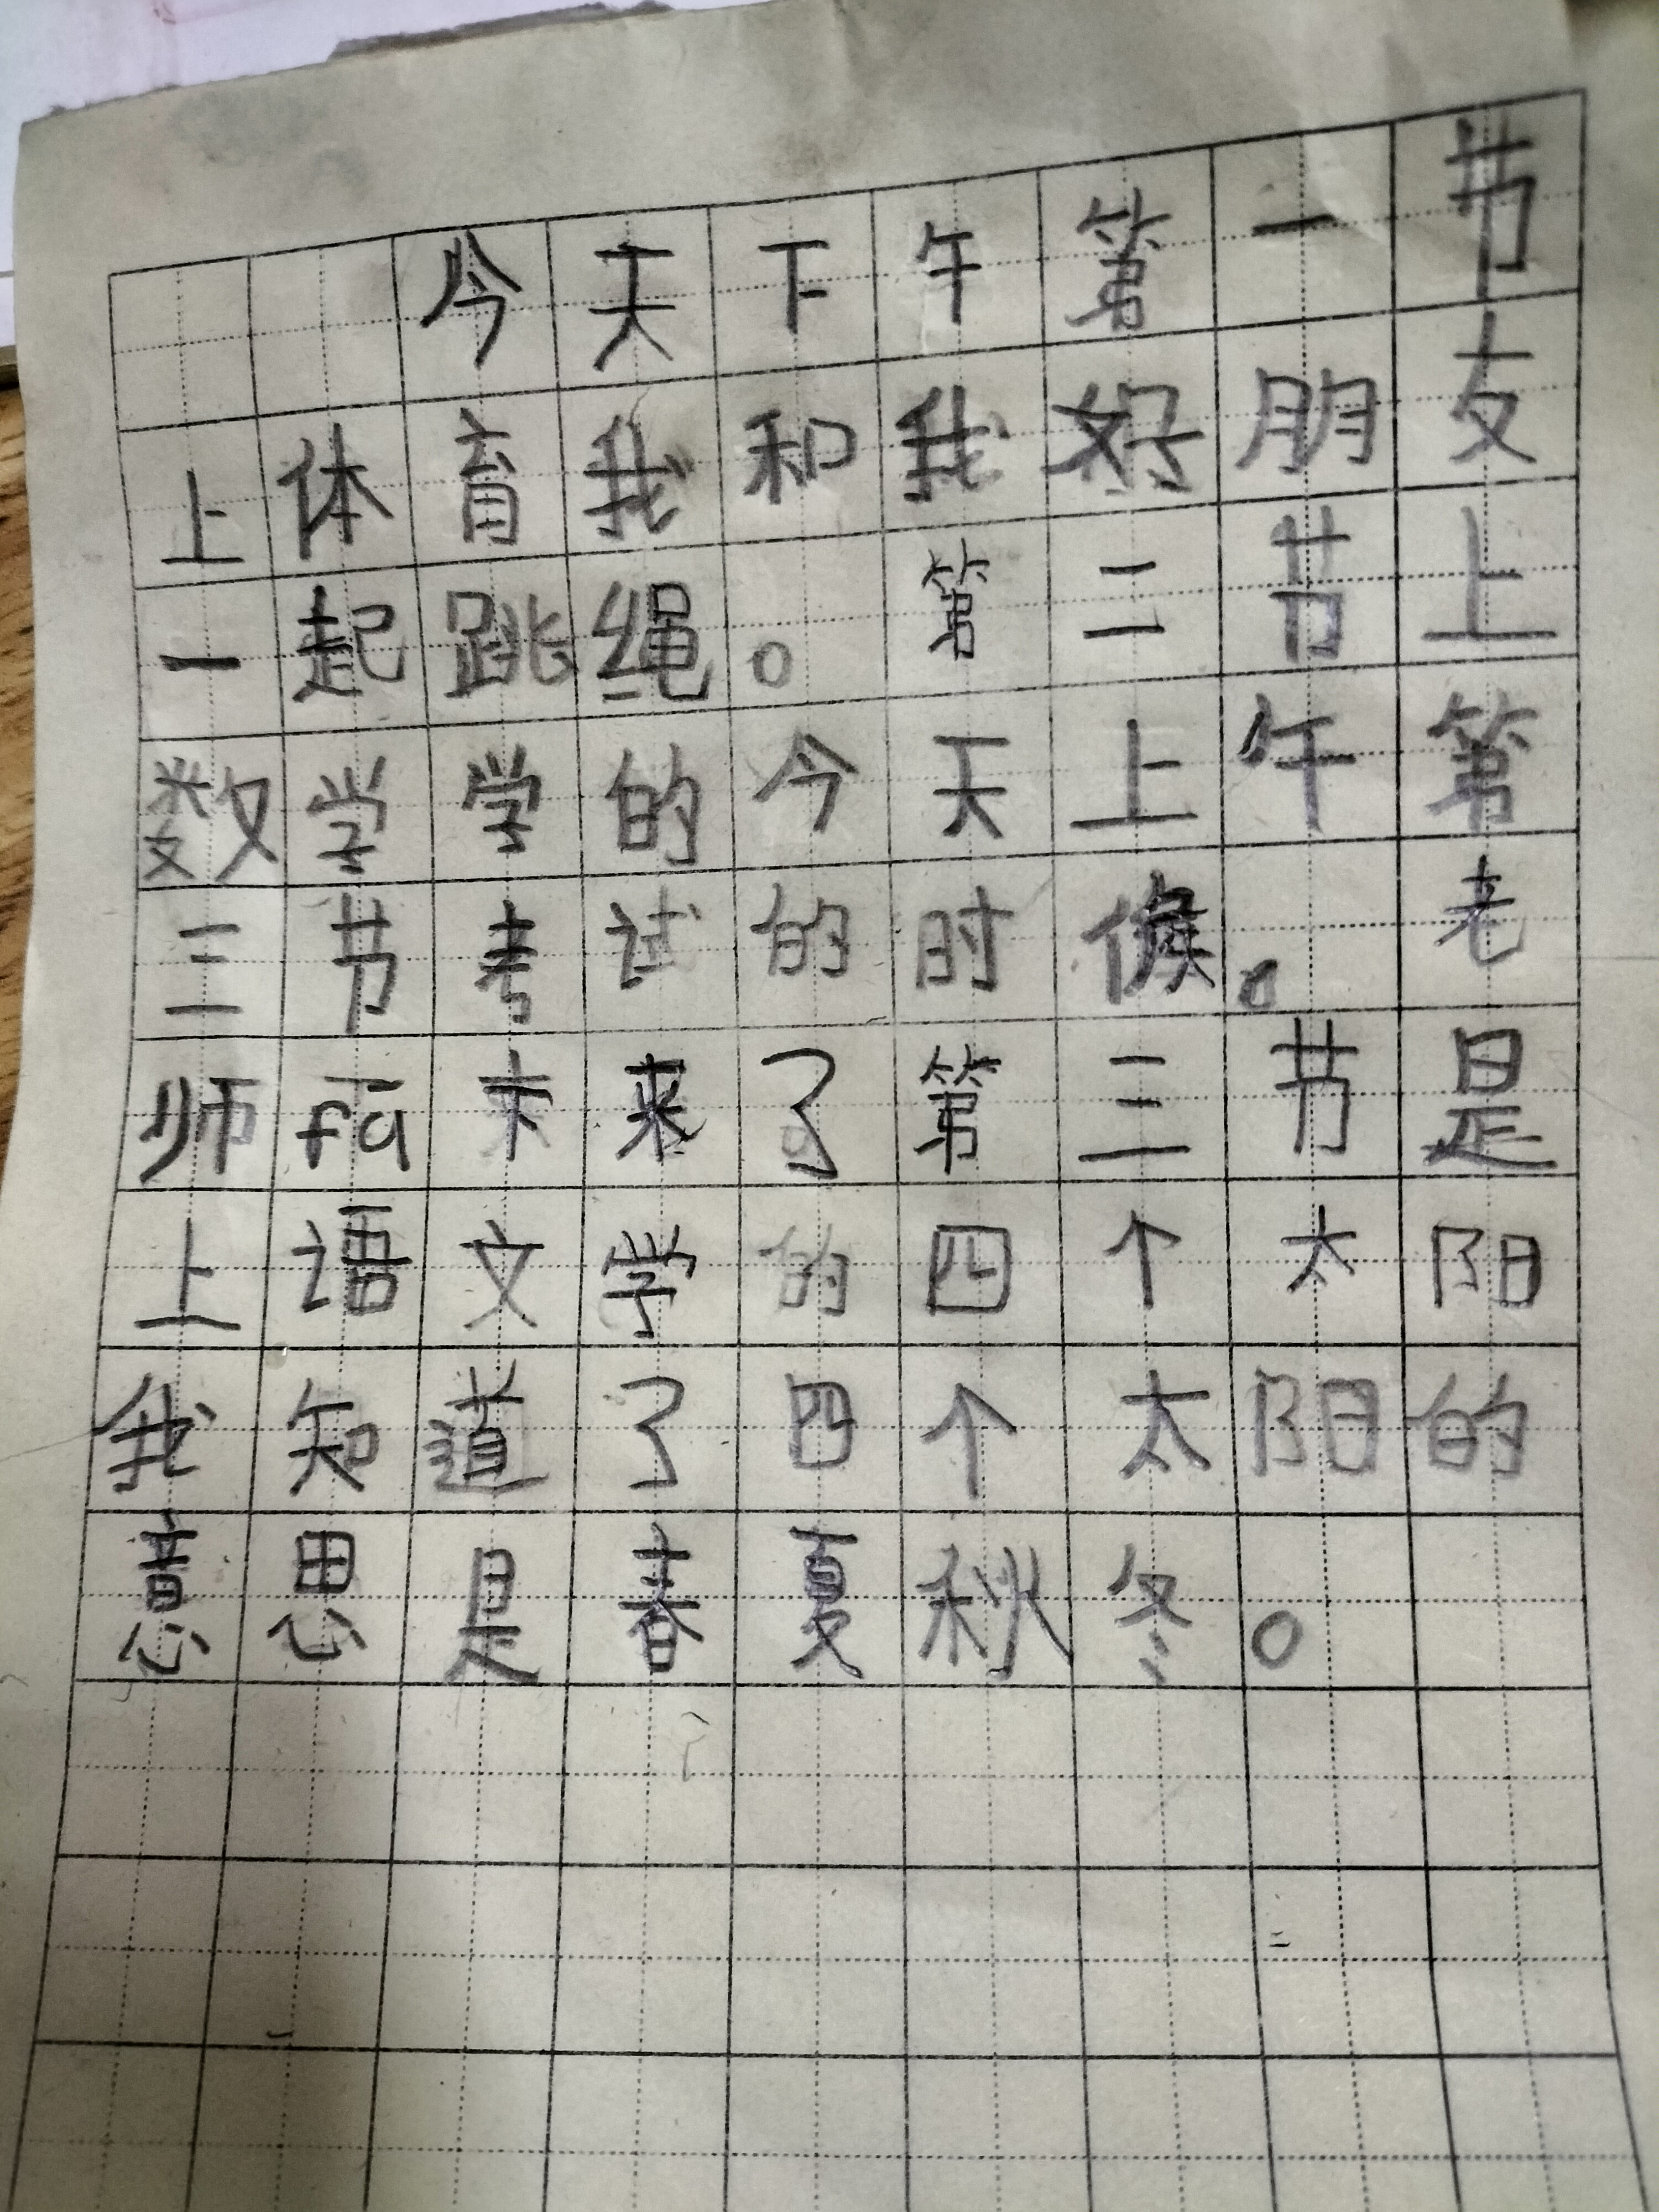 今天下午第一节
上体育我和我好朋友
一起跳绳。第二节上
数学学的今天上午第
三节考试的时候。老
师fā下来了第三节是
上语文学的四个太阳
我知道了四个太阳的
意思是春夏秋冬。